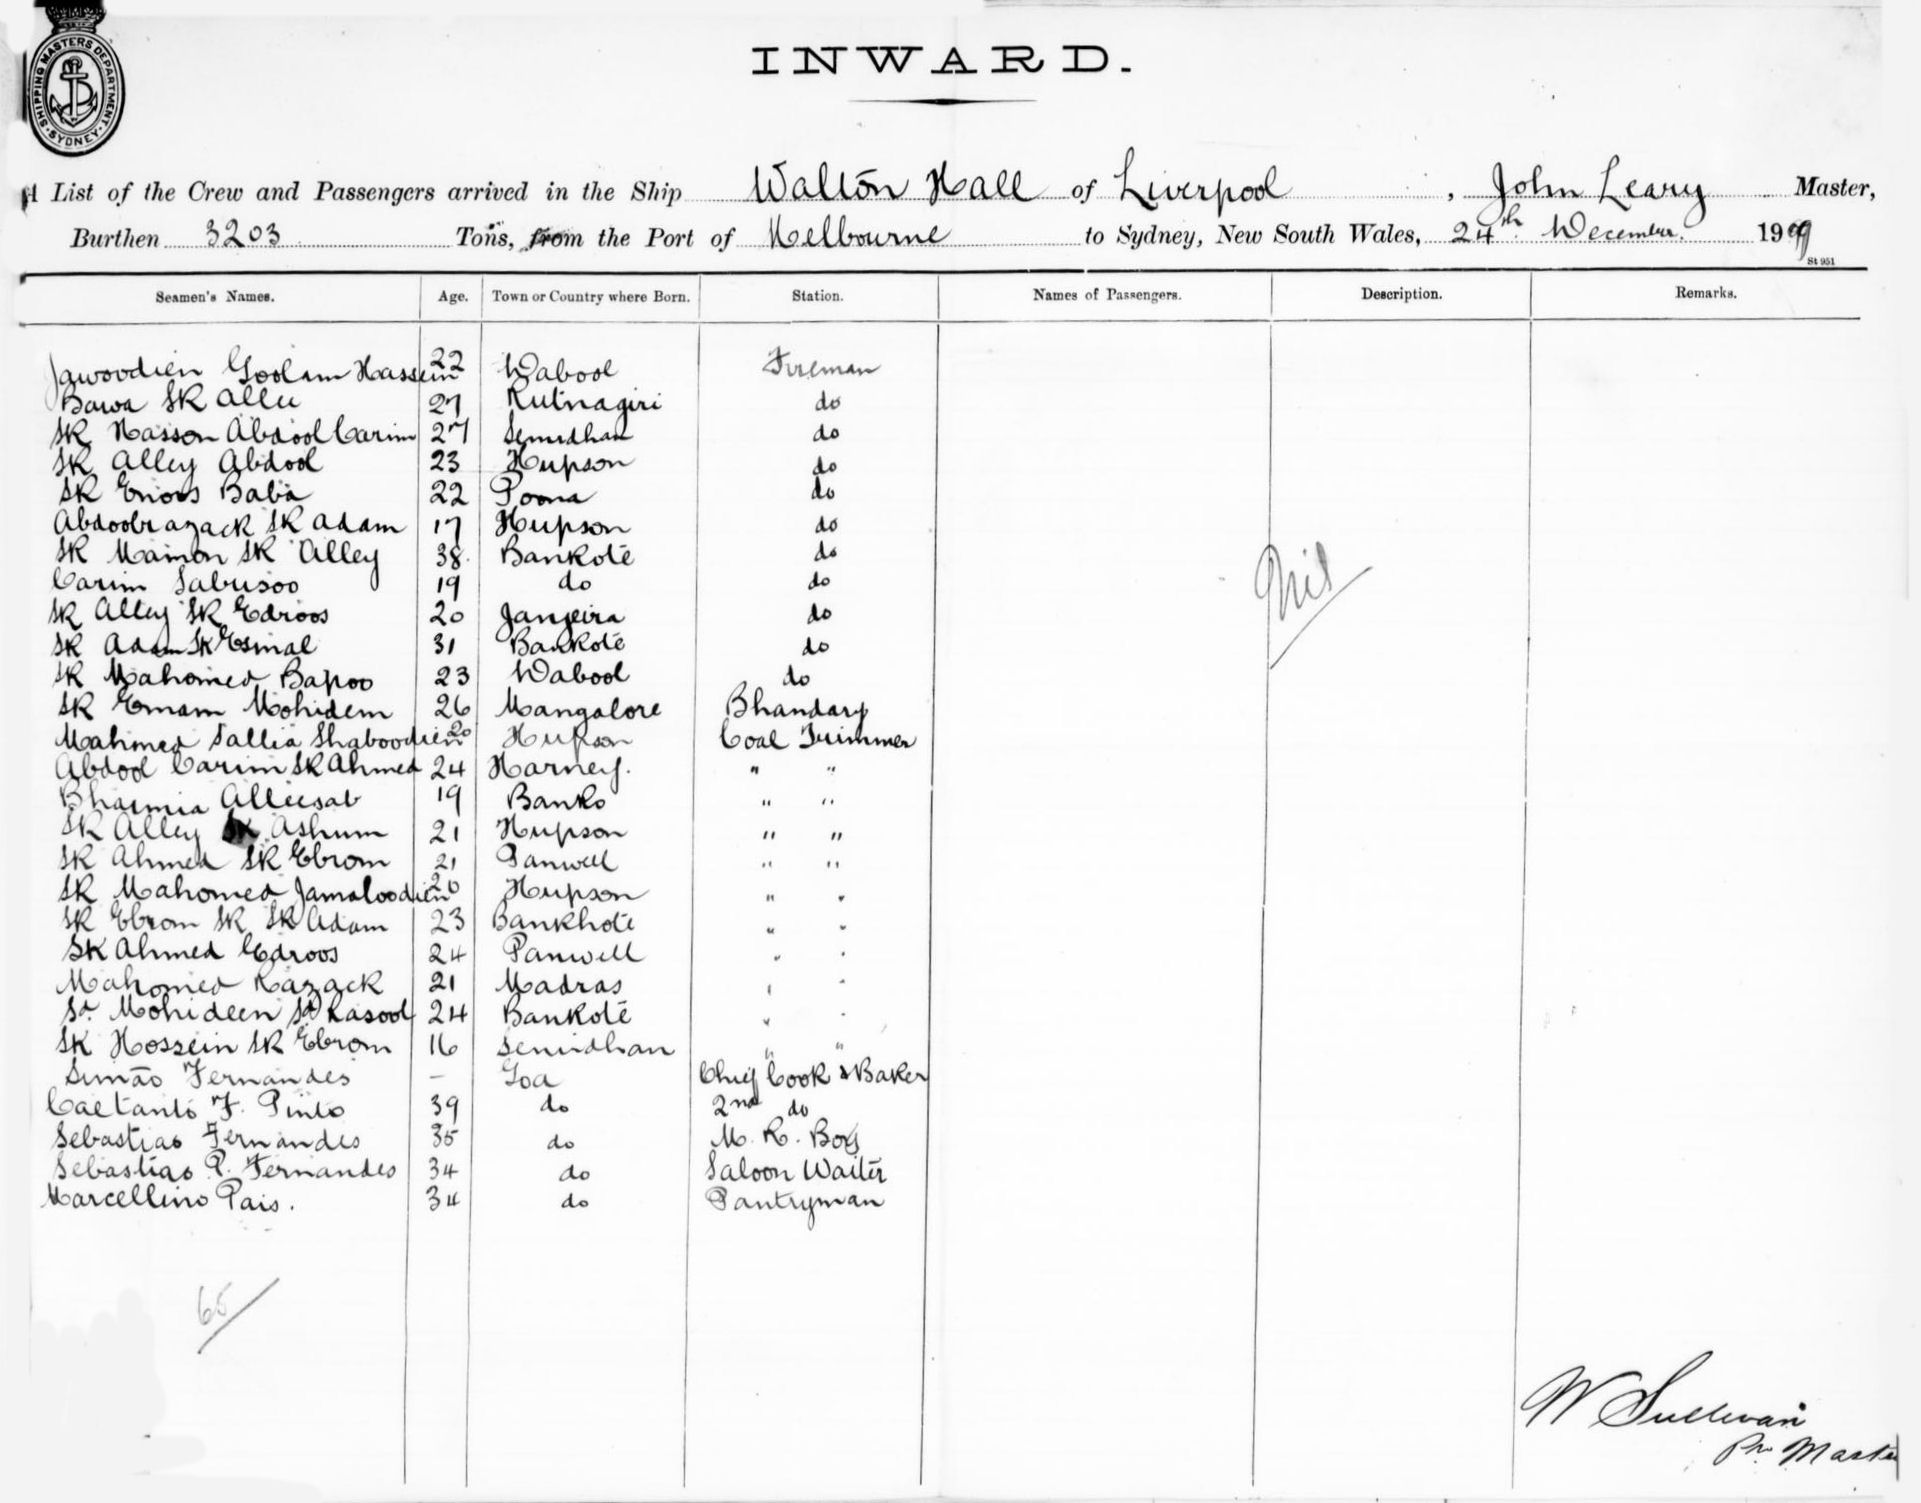 SHIPPING MASTERS DEPARTMENT. SYDNEY.
INWARD.
A List of the Crew and Passengers arrived in the Ship Walton Hall of Liverpool, John Leary Master,
Burthen 3203 Tons, from the Port of Melbourne to Sydney, New South Wales, 24th December. 1909
St 951
Seamen's Names. Age. Town or Country where Born. Station. Names of Passengers. Description. Remarks.
Jawoodien Goolam Hassein 22 Wabool Fireman
Bawa SK Allu 27 Rutnagiri do
SK Hasson Abdool Carim 27 Senudhan do
SK Alley Abdool 23 Hupson do
SK Enoos Baba 22 Poona do
Abdoobrazack SK Adam 17 Hupson do
SK Mainon SK Alley 38 Bankote do
Carim Sabusoo 19 do do
SK Alley SK Edroos 20 Janjeira do
SK Adam SK Esmal 31 Bankote do
SK Mahomed Bapoo 23 Wabool do
SK Emam Mohidem 26 Mangalore Bhandary
Mahmed Sallia Shaboodien 20 Hupson Coal Trimmer
Abdool Carim SK Ahmed 24 Harney. " "
Bharmia Alleesab 19 Banko " "
SK Alley SK Ashum 21 Hupson " "
SK Ahmed SK Ebrom 21 Panwell " "
SK Mahomed Jamaloodien 20 Hupson " "
SK Ebrom SK SK Adam 23 Bankhote " "
SK Ahmed Edroos 24 Panwell " "
Mahomed Razack 21 Madras " "
Sd. Mohideen Sd Rasool 24 Bankote " "
SK Hossein SK Ebrom 16 Senudhan " "
Simão Fernandes – Goa Chief Cook & Baker
Caetanto F. Pinto 39 do 2nd do
Sebastiao Fernandes 35 do M. R. Boy
Sebastiao P. Fernandes 34 do Saloon Waiter
Marcellino Pais. 34 do Pantryman
Nil
65
W Sullivan
Pr Master